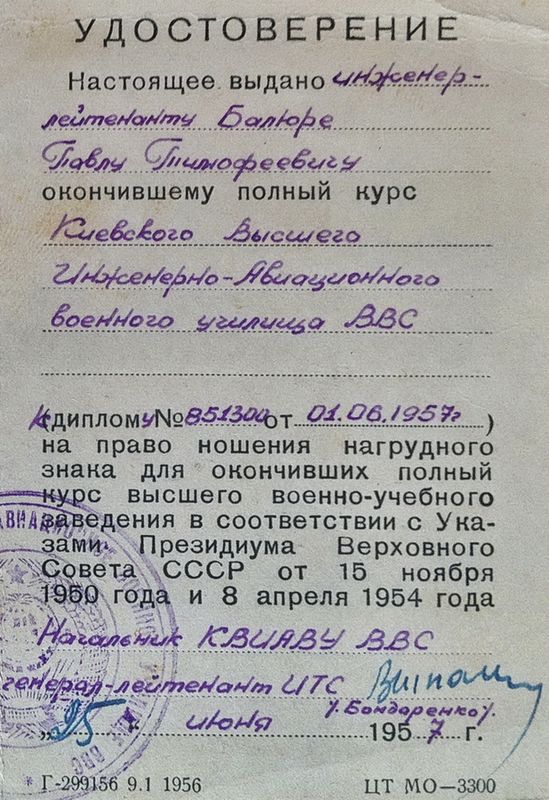 УДОСТОВЕРЕНИЕ
Настоящее выдано инженер-
лейтенанту Балюре
Павлу Тимофеевичу
окончившему полный курс
Киевского Высшего
Инженерно-Авиационного
военного училища ВВС
(к дипломуу № 851300 от 01.06.1957г)
на право ношения нагрудного
знака для окончивших полный
курс высшего военно-учебного
заведения в соответствии с Ука-
зами Президиума Верховного
Совета СССР от 15 ноября
1950 года и 8 апреля 1954 года
Начальник КВИАВУ ВВС
генерал-лейтенант ИТС
/Бондаренко/.
„25" июня 1957 г.
* Г-299156 9.1 1956 ЦТ МО—3300